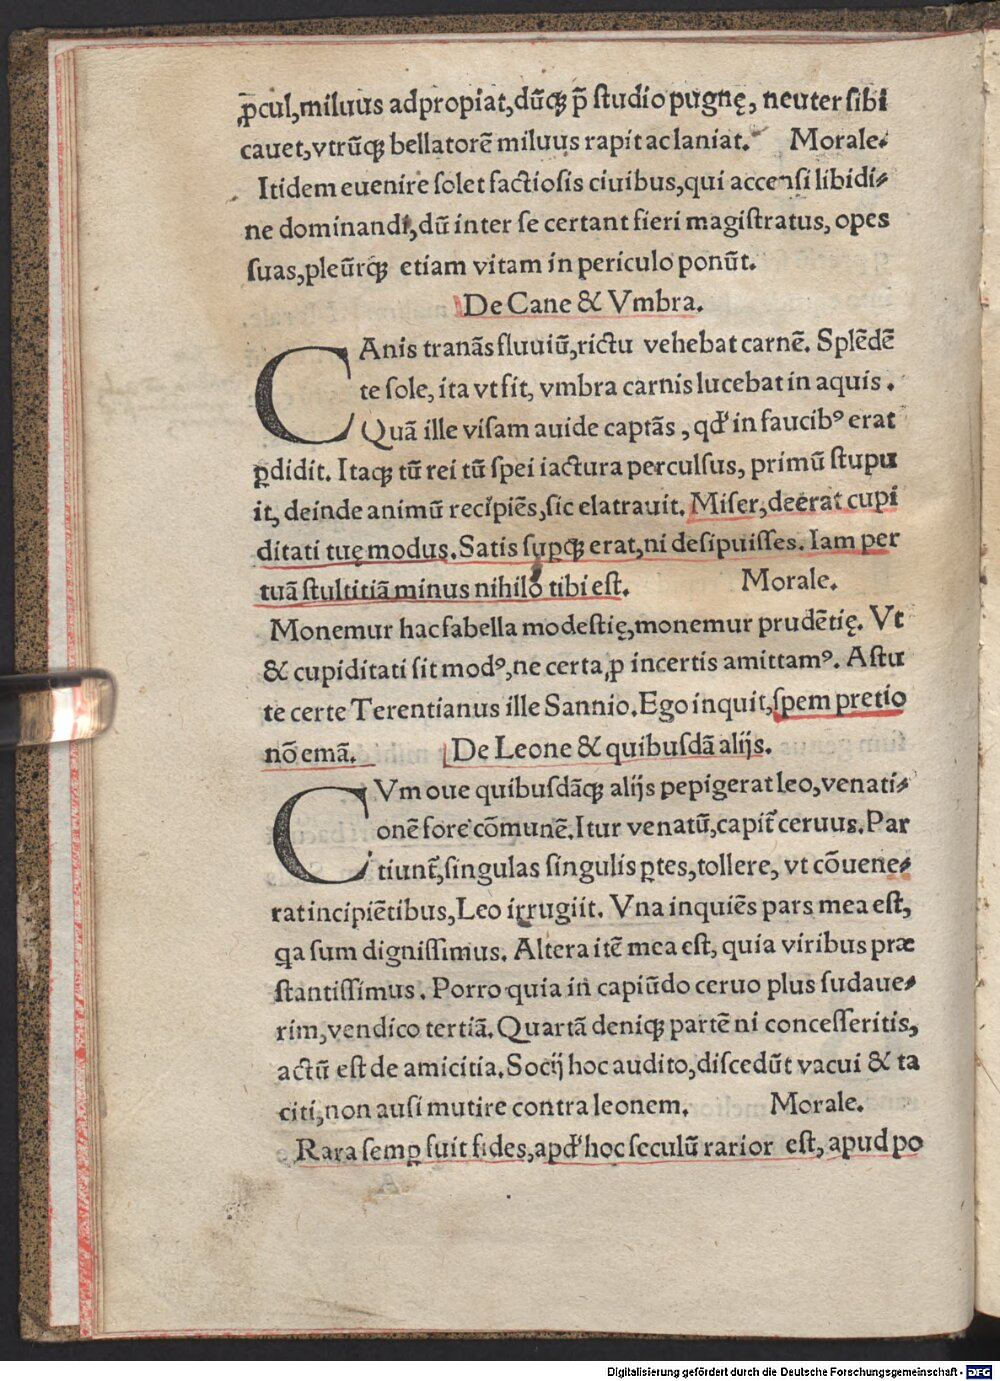 ꝓcul, miluus adpropiat, dũqꝫ p̃ ſtudio pugnę, neuter ſibi
cauet, vtrũqꝫ bellatorẽ miluus rapit ac laniat. Morale.
Itidem euenire ſolet factioſis ciuibus, qui accenſi libidi⸗
ne dominandi, dũ inter ſe certant fieri magiſtratus, opes
ſuas, pleũrqꝫ etiam vitam in periculo ponũt.
De Cane & Vmbra.
CAnis tranãs fluuiũ, rictu vehebat carnẽ. Splẽdẽ
te ſole, ita vt fit, vmbra carnis lucebat in aquis.
Quã ille viſam auide captãs, qđ in faucibꝰ erat
ꝑdidit. Itaqꝫ tũ rei tũ ſpei iactura perculſus, primũ ſtupu
it, deinde animũ recipiẽs, ſic elatrauit. Miſer, deerat cupi
ditati tuę modus. Satis ſuꝑqꝫ erat, ni deſipuiſſes. Iam per
tuã ſtultitiã minus nihilo tibi eſt. Morale.
Monemur hac fabella modeſtię, monemur prudẽtię. Vt
& cupiditati ſit modꝰ, ne certa ꝓ incertis amittamꝰ. Aſtu
te certe Terentianus ille Sannio. Ego inquit, ſpem pretio
nõ emã. De Leone & quibuſdã alijs.
CVm oue quibuſdãqꝫ alijs pepigerat leo, venati⸗
onẽ fore cõmunẽ. Itur venatũ, capit̃ ceruus. Par
tiunt̃, ſingulas ſingulis ꝑtes, tollere, vt cõuene⸗
rat incipiẽtibus, Leo irrugiit. Vna inquiẽs pars mea eſt,
qa ſum digniſſimus. Altera itẽ mea eſt, quia viribus præ
ſtantiſſimus. Porro quia in capiũdo ceruo plus ſudaue⸗
rim, vendico tertiã. Quartã deniqꝫ partẽ ni conceſſeritis,
actũ eſt de amicitia. Socij hoc audito, diſcedũt vacui & ta
citi, non auſi mutire contra leonem. Morale.
Rara ſemꝑ fuit fides, apđ hoc ſeculũ rarior eſt, apud po
Digitalisierung gefördert durch die Deutsche Forschungsgemeinschaft - DFG